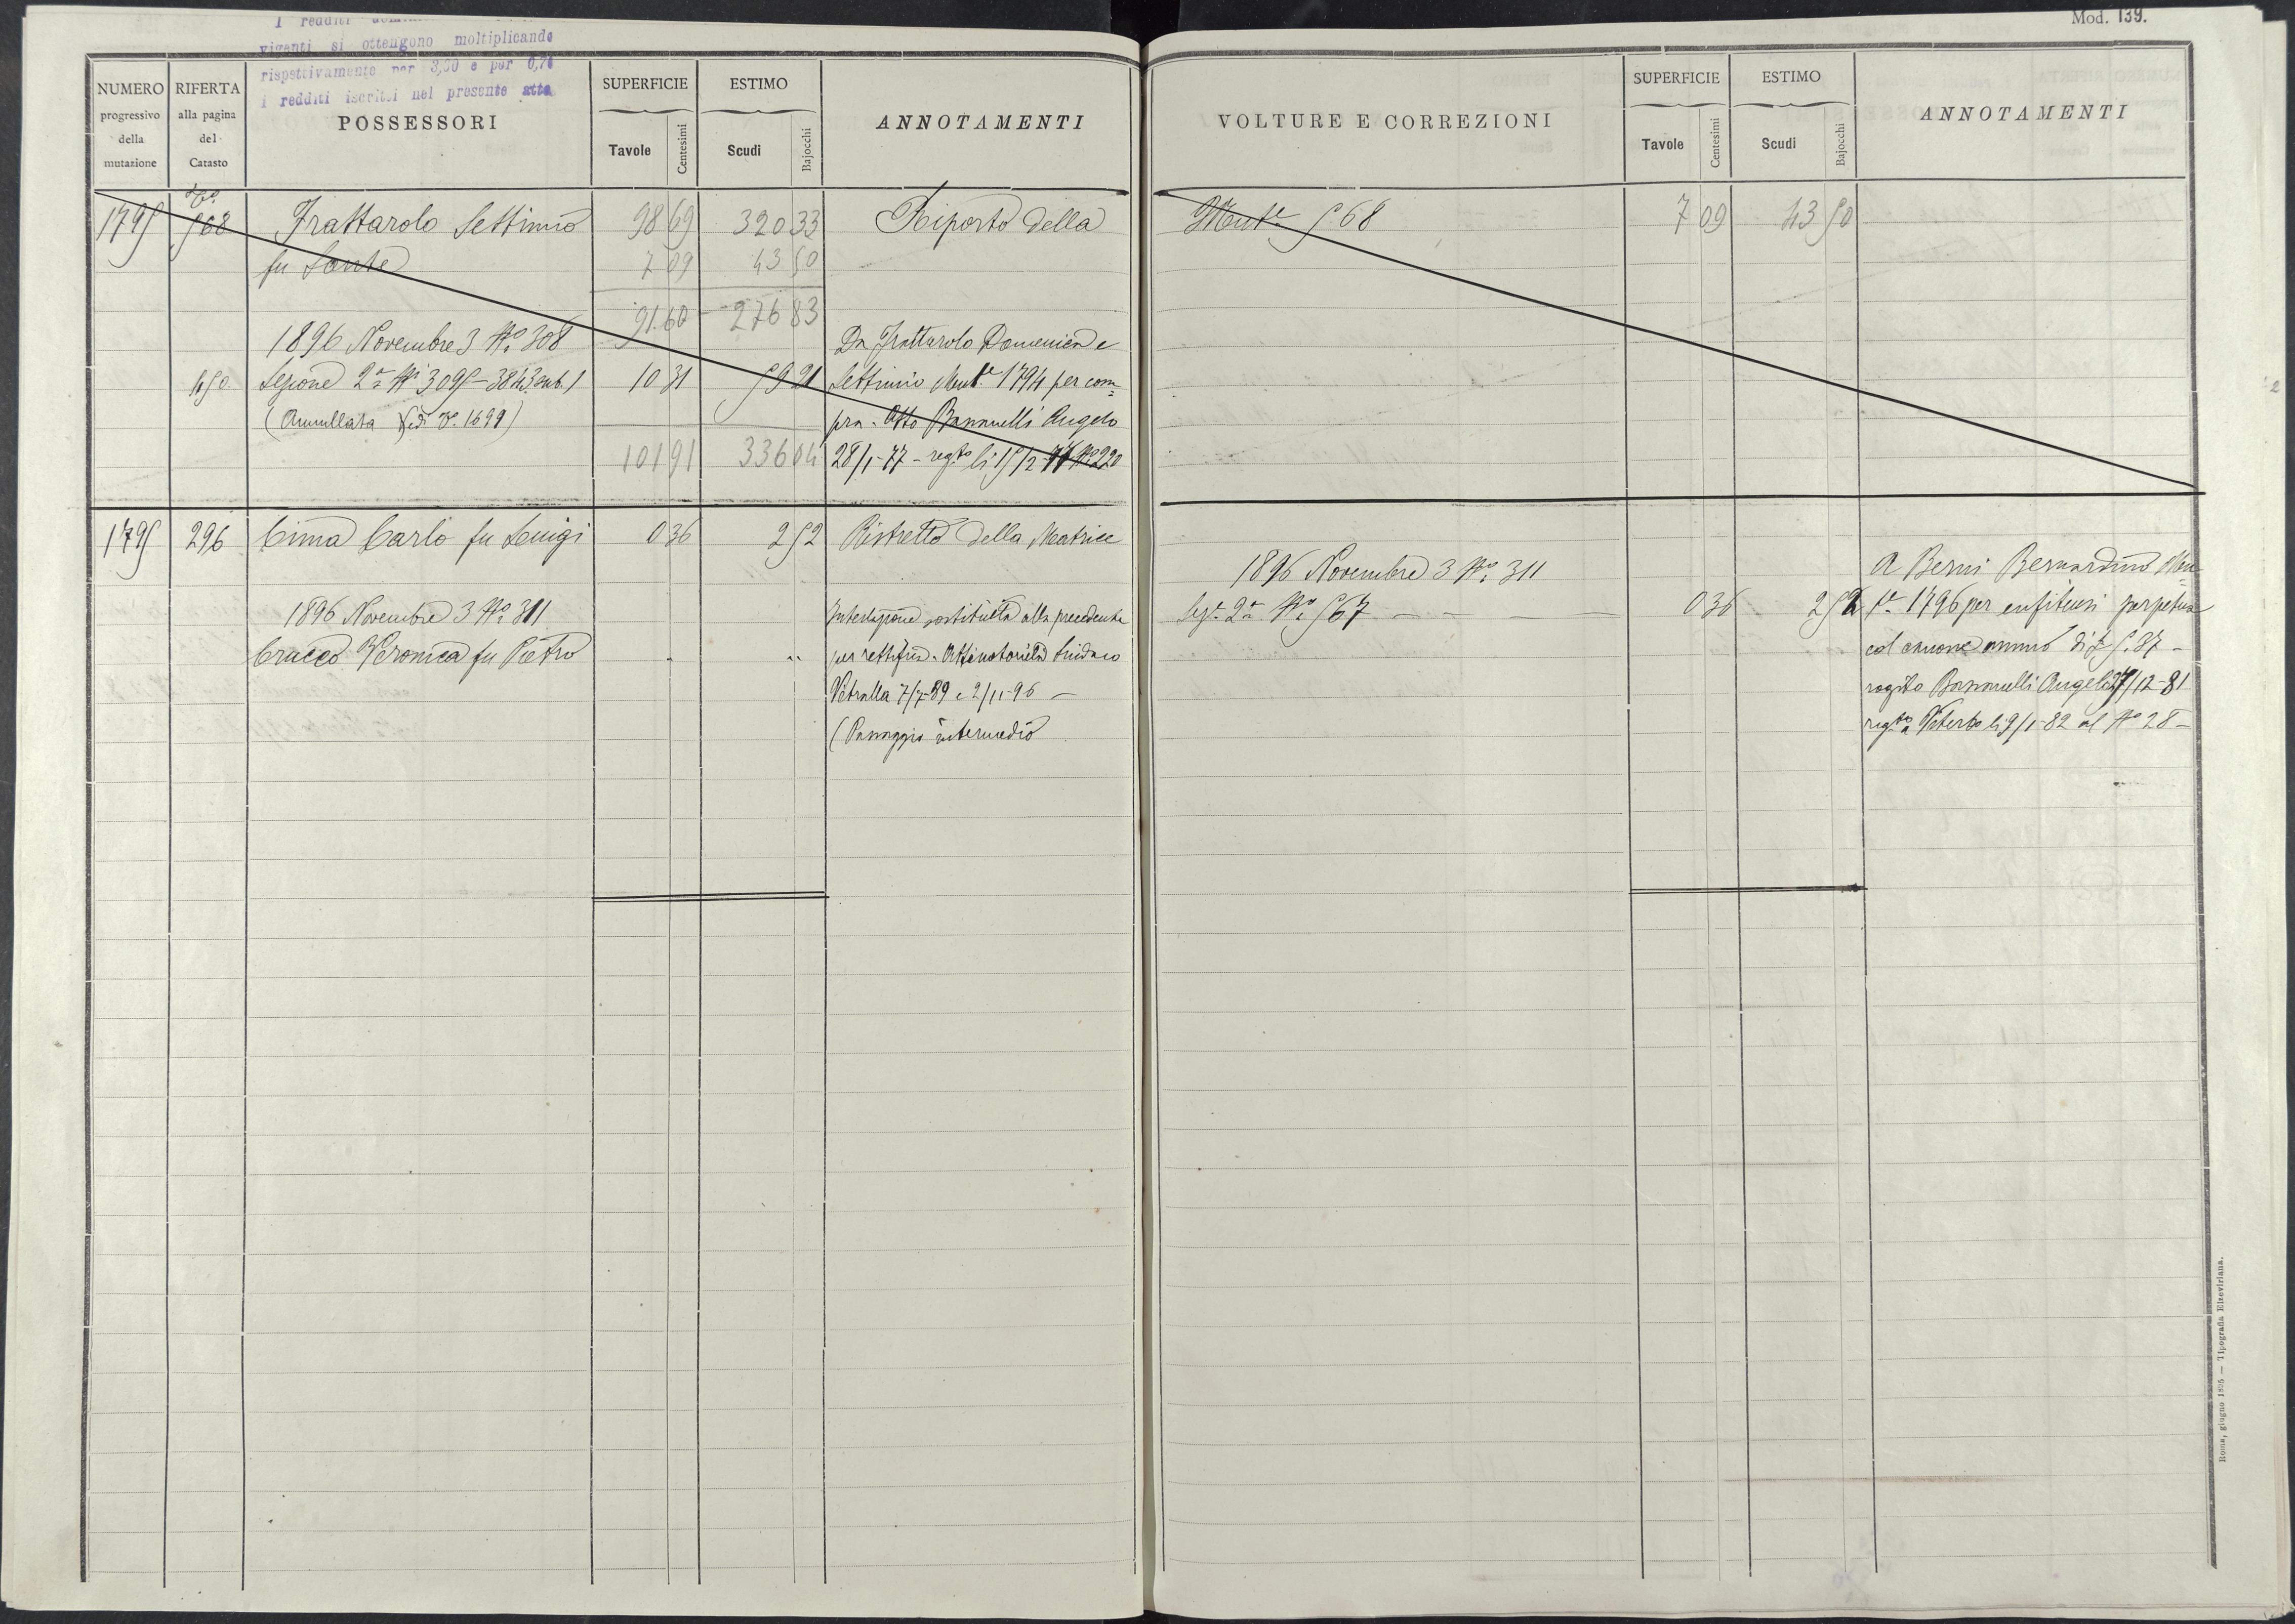 Mod. 139.
viganti si ottengono moltiplicando
rispettivamente per 3,00 e per 0,7
i redditi iscritti nel presente atto
NUMERO progressivo della mutazione
RIFERTA alla pagina del Catasto
POSSESSORI
SUPERFICIE
Tavole Centesimi
ESTIMO
Scudi Bajocchi
ANNOTAMENTI
1795 568 Frattarolo Settimio 98 69 320 33 Riporto della
fu Sante 7 09 43 50
91.60 276 83
1896 Novembre 3 No. 308 Da Frattarolo Domenico e
Sezione 2a No. 3095 - 3843 sub. 1 10 31 59 21 Settimio Mut.e 1794 per com=
(Annullata Vedi 1699) pra - Atto Bannuelli Angelo
101 91 336 04 28/1-77 - regto li 15/2-77 No 220
1795 296 Cima Carlo fu Luigi 0 36 2 52 Ristretto della Matrice
1896 Novembre 3 No. 311 Intestazione sostituita alla precedente
Crucco Veronica fu Pietro per rettifica - Atti notorietà Sindaco
Vetralla 7/7-89 e 2/11-96 -
(Passaggio intermedio
VOLTURE E CORREZIONI
SUPERFICIE
Tavole Centesimi
ESTIMO
Scudi Bajocchi
ANNOTAMENTI
Mut.e 568 7 09 43 50
1896 Novembre 3 No. 311 A Berni Bernardino Mu=
Sez. 2a No. 567 0 36 2 52 t.e 1796 per enfiteusi perpetua
col canone annuo di £ 5.37 -
rogito Bannuelli Angelo 27/12-81
regto a Viterbo li 9/1-82 al No 28 -
Roma, giugno 1895 — Tipografia Elzeviriana.